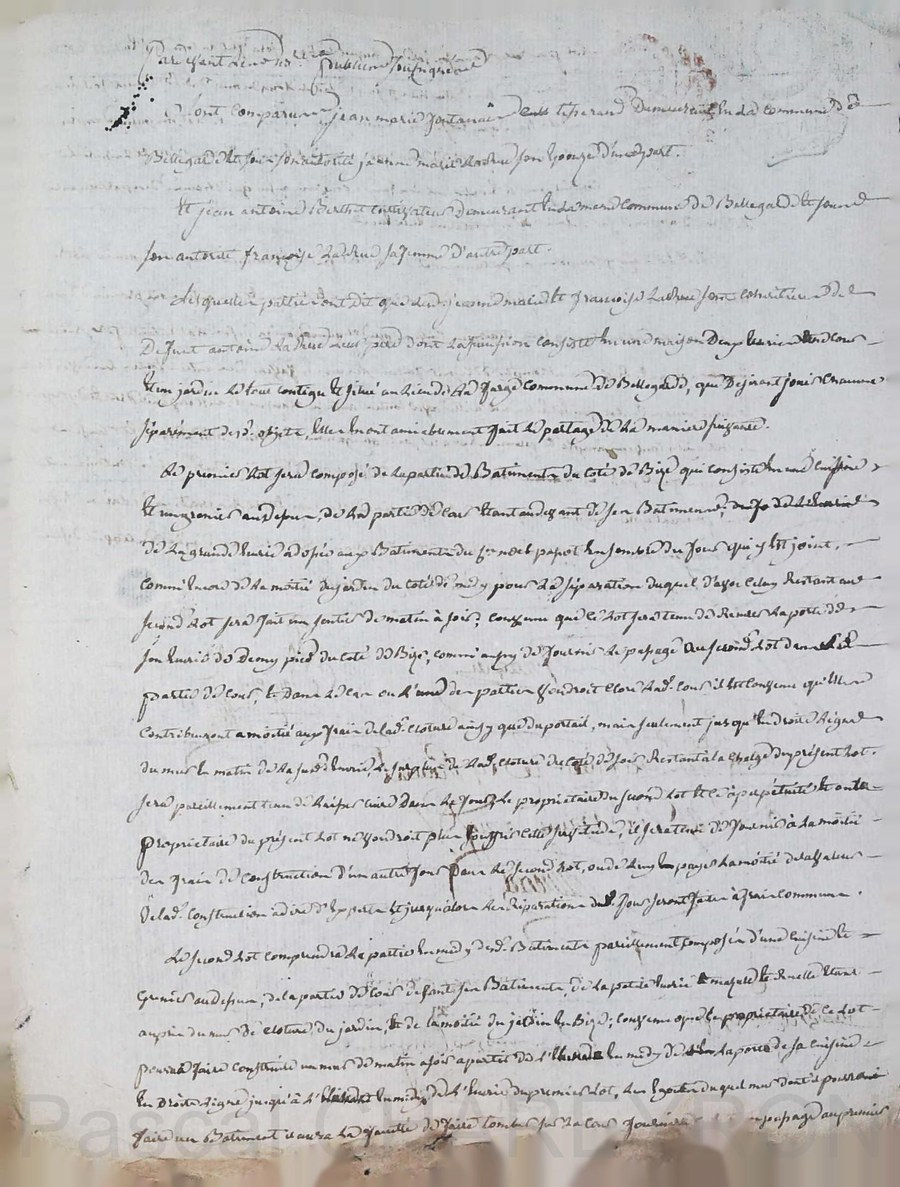 Pardevant le no.re public soussigné
Sont comparus jean marie tisserand Demeurant En La commune de
Bellegarde Et sous son autorité jeanne marie Ladrue son Epouze d'une part.
Et jean antoine Berthet cultivateur demeurant En La meme commune de Bellegarde Et sous
son autorité françoise Ladrue sa femme d'autre part.
Lesquelles parties ont dit que jeanne marie Et françoise Ladrue sont héritieres de
Defunt antoine Ladrue Leur pere dont La succession consiste En une maison Deux Ecuries cour
Et un jardin Le tout contigu Et situé au Lieu de La forge commune de Bellegarde, que Desirant jouir chacune
séparément desd. objets, Elles En ont amiablement fait Le partage de La maniere suivante.
Le premier Lot sera composé de La partie de Batiments du coté de Bize qui consiste En une Cuisine
Et un grenier au dessus, de La partie de cour Etant au devant de ses Batiments,
de La grande Ecurie adossée aux Batiments du papet Ensemble du four qui y Est joint,
comme Encore de La moitié du jardin du coté de midy pour La séparation duquel d'avec Celuy Restant au
second Lot sera fait un sentier de matin à soir, convenu que ce Lot sera tenu de La porte de
son Ecurie de Demy pied du coté de Bize, comme aussy de fournir Le passage au second Lot dans La
partie de cour, Et Dans Le cas ou L'une des parties voudroit Clore Lad. Cour il Est Convenu qu'Elles
contribueront a moitié aux frais de lad. cloture ainsy que du portail, mais seulement jusqu'En droite Ligne
du mur En matin de La susd. Ecurie, Le surplus de Lad. cloture du coté de soir Restant à La charge du présent Lot.
sera pareillement tenu de Laisser cuire Dans Le four Le proprietaire du second Lot Et ce à perpétuité Et ou Le
Proprietaire du présent Lot ne voudroit plus souffrir cette servitude, il sera tenu de fournir à La moitié
des frais de construction d'un autre four Pour Le second Lot, ou de Luy En payer La moitié de La valeur
de lad. construction à dire d'Experts Et jusqu'alors Les Réparations du four seront faites à frais commune.
Le second Lot comprendra La partie En midy desd. Batiments pareillement composée d'une cuisine Et
Grenier au dessus, de La partie de cour devant ses Batiments, de La petite Ecurie Et Etant
auprès du mur de cloture du jardin, Et de La moitié du jardin En Bize; convenu que Le proprietaire de ce Lot
pourra faire construire un mur de matin a soir a partir de En midy de La porte de sa cuisine
En Droite Ligne jusqu'à En midy de L'Ecurie du premier Lot, duquel mur dont il pourroit
faire un Batiment il aura La faculté de faire tomber sur La cour passage au premier